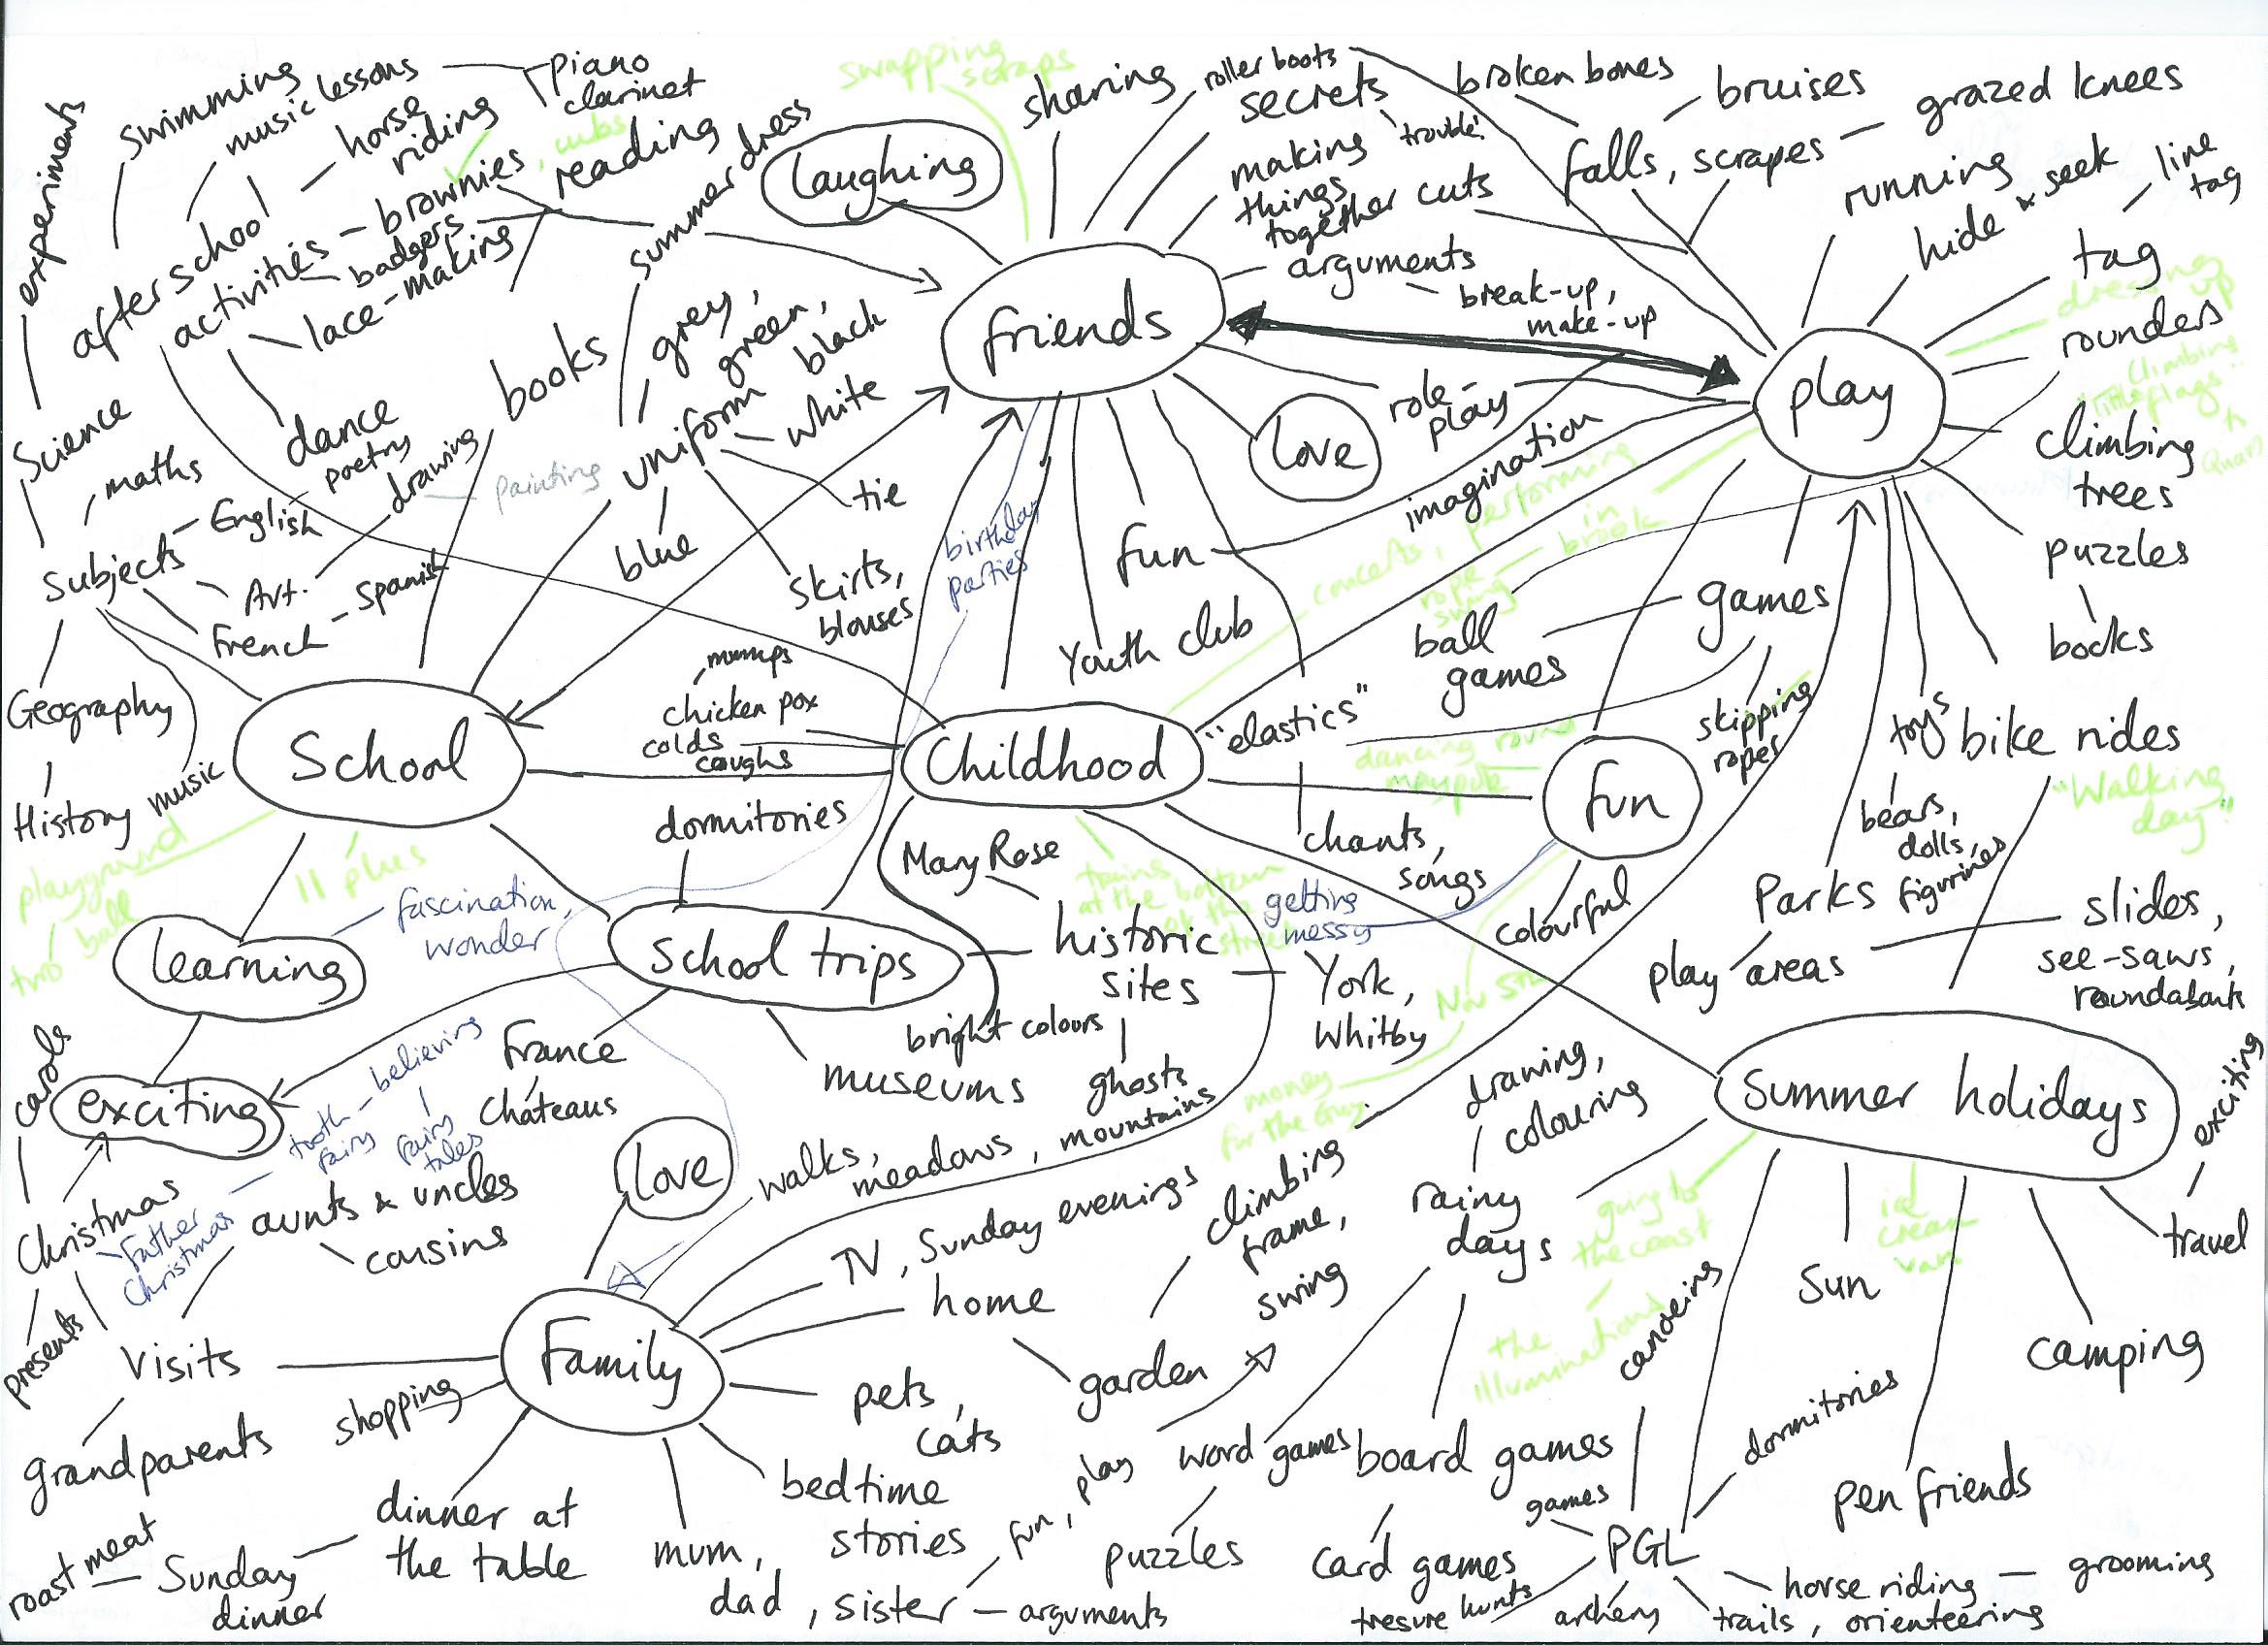 swimming
music lessons
piano
clarinet
horse
riding
brownies
, cubs
badgers
lace-making
reading
experiments
after school
activities
dance
summer dress
books
grey,
green,
black
uniform
white
tie
blue
skirts,
blouses
Science
maths
Subjects
English
poetry
drawing
painting
Art.
French
Spanish
Geography
History
music
School
playground
two ball
11 plus
learning
fascination,
wonder
exciting
laughing
swapping
scraps
sharing
roller boots
secrets
trouble!
making
things
together
cuts
arguments
break-up,
make-up
friends
love
role-
play
imagination
fun
Youth club
birthday
parties
"elastics"
chants,
songs
broken bones
bruises
falls, scrapes
grazed knees
running
hide & seek
line
tag
tag
dressing
up
rounders
Climbing
play
climbing
trees
puzzles
books
concerts, performing
rope
swing
in
brook
games
ball
games
skipping
ropes
toys
bears,
dolls,
figurines
bike rides
"Walking
day"
Parks
play areas
slides,
see-saws,
roundabouts
mumps
chicken pox
colds
coughs
Childhood
dancing round
maypole
fun
colourful
getting
messy
Nov 5th
money
for the Guy
trains
at the bottom
of the
street
dormitories
School trips
Mary Rose
historic
sites
York,
Whitby
ghosts
bright colours
museums
France
Chateaus
carols
Christmas
presents
Father
Christmas
tooth
fairy
believing
fairy
tales
aunts & uncles
cousins
visits
grandparents
shopping
love
Family
walks,
meadows, mountains
TV, Sunday evenings
home
garden
climbing
frame,
swing
pets,
cats
bedtime
stories
mum,
dad, sister
fun, play
arguments
dinner at
the table
Sunday
dinner
roast meat
Summer holidays
drawing,
colouring
rainy
days
word games
puzzles
board games
card games
going to
the coast
the
illuminations
Sun
ice
cream
van
exciting
travel
camping
pen friends
canoeing
dormitories
games
PGL
tresure hunts
archery
trails, orienteering
horse riding
grooming